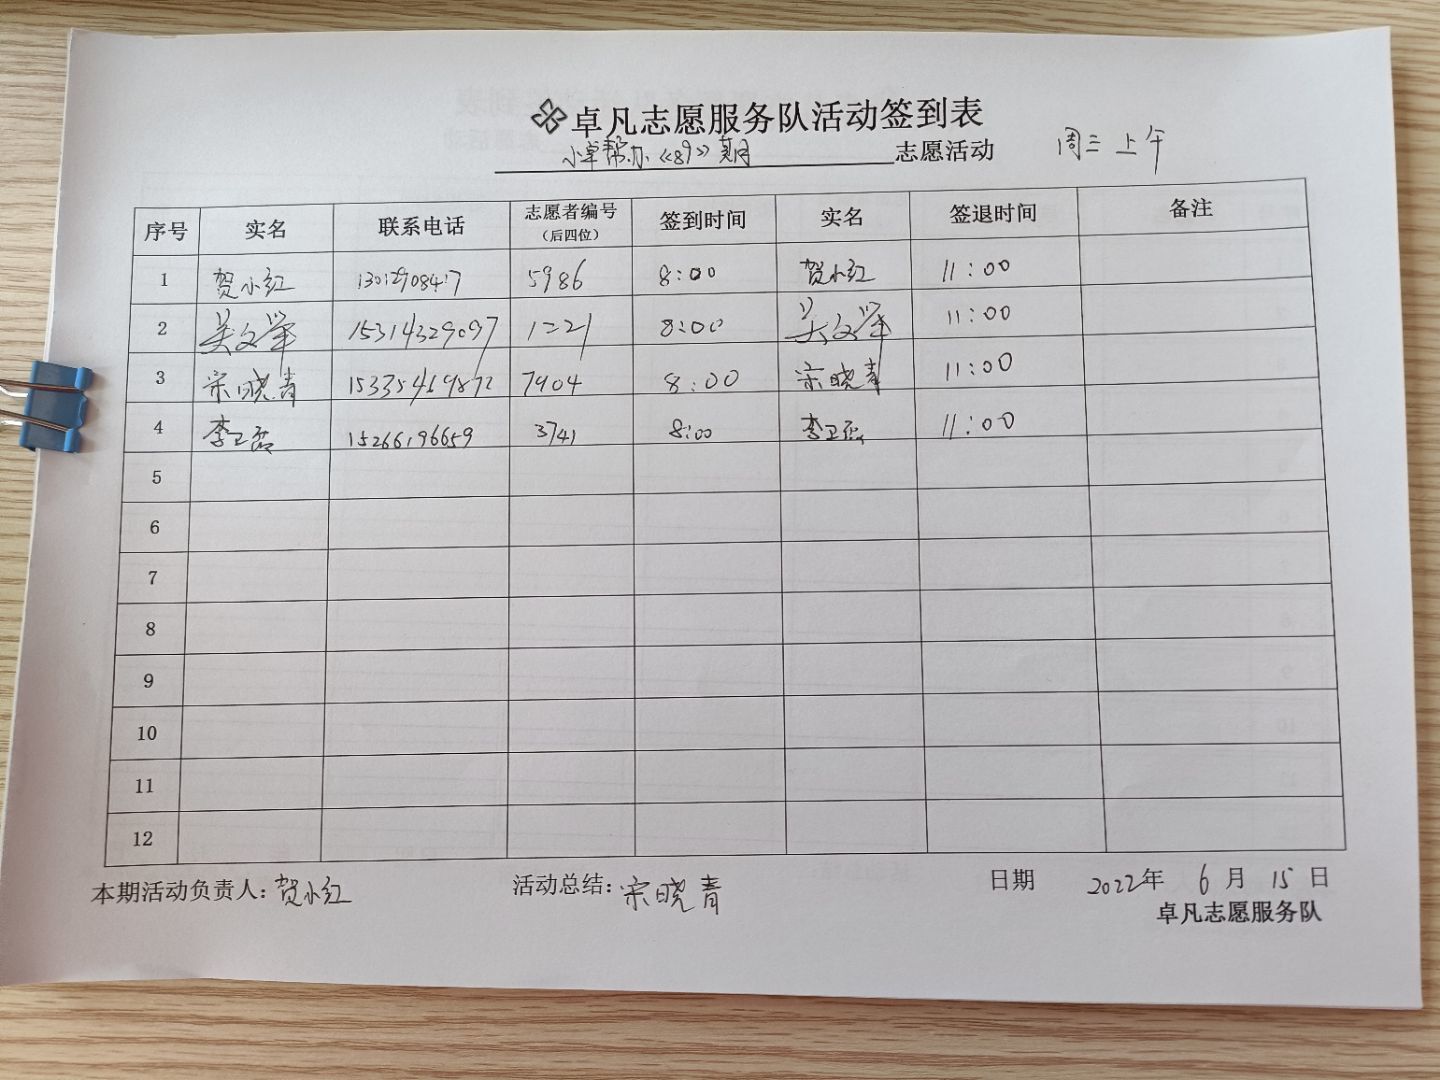 卓凡志愿服务队活动签到表
小卓帮办《89》期 志愿活动 周三上午
序号 实名 联系电话 志愿者编号（后四位） 签到时间 实名 签退时间 备注
1 贺小红 5986 8:00 贺小红 11:00
2 吴文学 15314329097 1221 8:00 吴文学 11:00
3 宋晓青 15335469872 7904 8:00 宋晓青 11:00
4 15266196659 3741 8:00 11:00
5
6
7
8
9
10
11
12
本期活动负责人：贺小红 活动总结：宋晓青 日期 2022年 6月 15日
卓凡志愿服务队